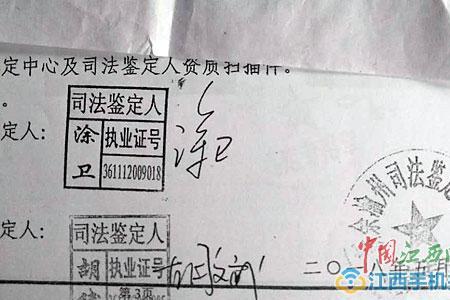 定中心及司法鉴定人资质扫描件。
定人:
司法鉴定人
涂卫
执业证号
361112009018
涂卫
定人:
司法鉴定人
胡
执业证号
第3页
二〇一八年五月
余榆州司法鉴定
中国江西
江西手机